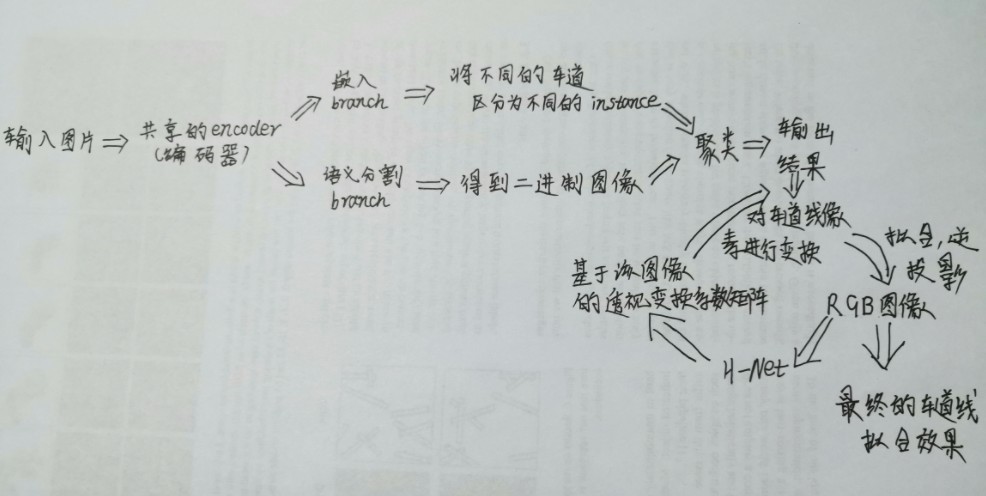 输入图片
共享的encoder
(编码器)
嵌入
branch
将不同的车道
区分为不同的instance
语义分割
branch
得到二进制图像
聚类
输出
结果
对车道线像
素进行变换
拟合,逆
投影
基于该图像
的透视变换系数矩阵
RGB图像
H-Net
最终的车道线
拟合效果